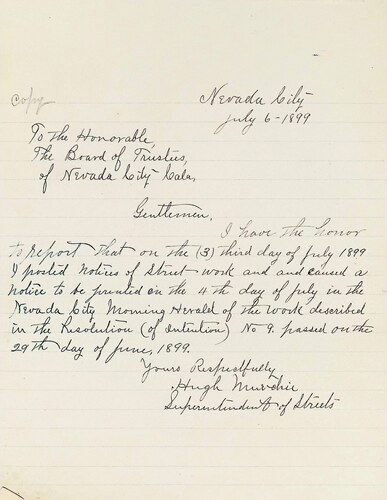 Nevada City
July 6 - 1899
Copy
To the Honorable,
The Board of Trustees,
of Nevada City Cala,
Gentlemen,
I have the honor
to report that on the (3) third day of July 1899
I posted notices of Street work and and caused a
notice to be printed in the 4th day of July in the
Nevada City Morning Herald of the work described
in the Resolution (of intention) No 9. passed on the
29th day of June, 1899.
Yours Respectfully
Hugh Murchie
Superentendent of Streets